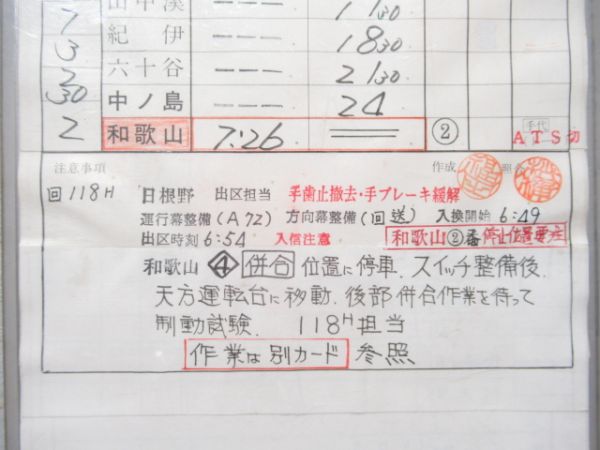 山中渓 --- 11 30
7 紀伊 --- 18 30
3 六十谷 --- 21 30
2 30 中ノ島 --- 24
2 和歌山 7:26 ②
手代 ATS切
注意事項 作成
回118H 日根野 出区担当 手歯止撤去・手ブレーキ緩解
運行幕整備(A72) 方向幕整備(回送) 入換開始 6:49
出区時刻 6:54 入信注意 和歌山②番停止位置要注
和歌山 ④ 併合 位置に停車. スイッチ整備後.
天方運転台に移動. 後部併合作業を待って
制動試験. 118H担当
作業は別カード 参照